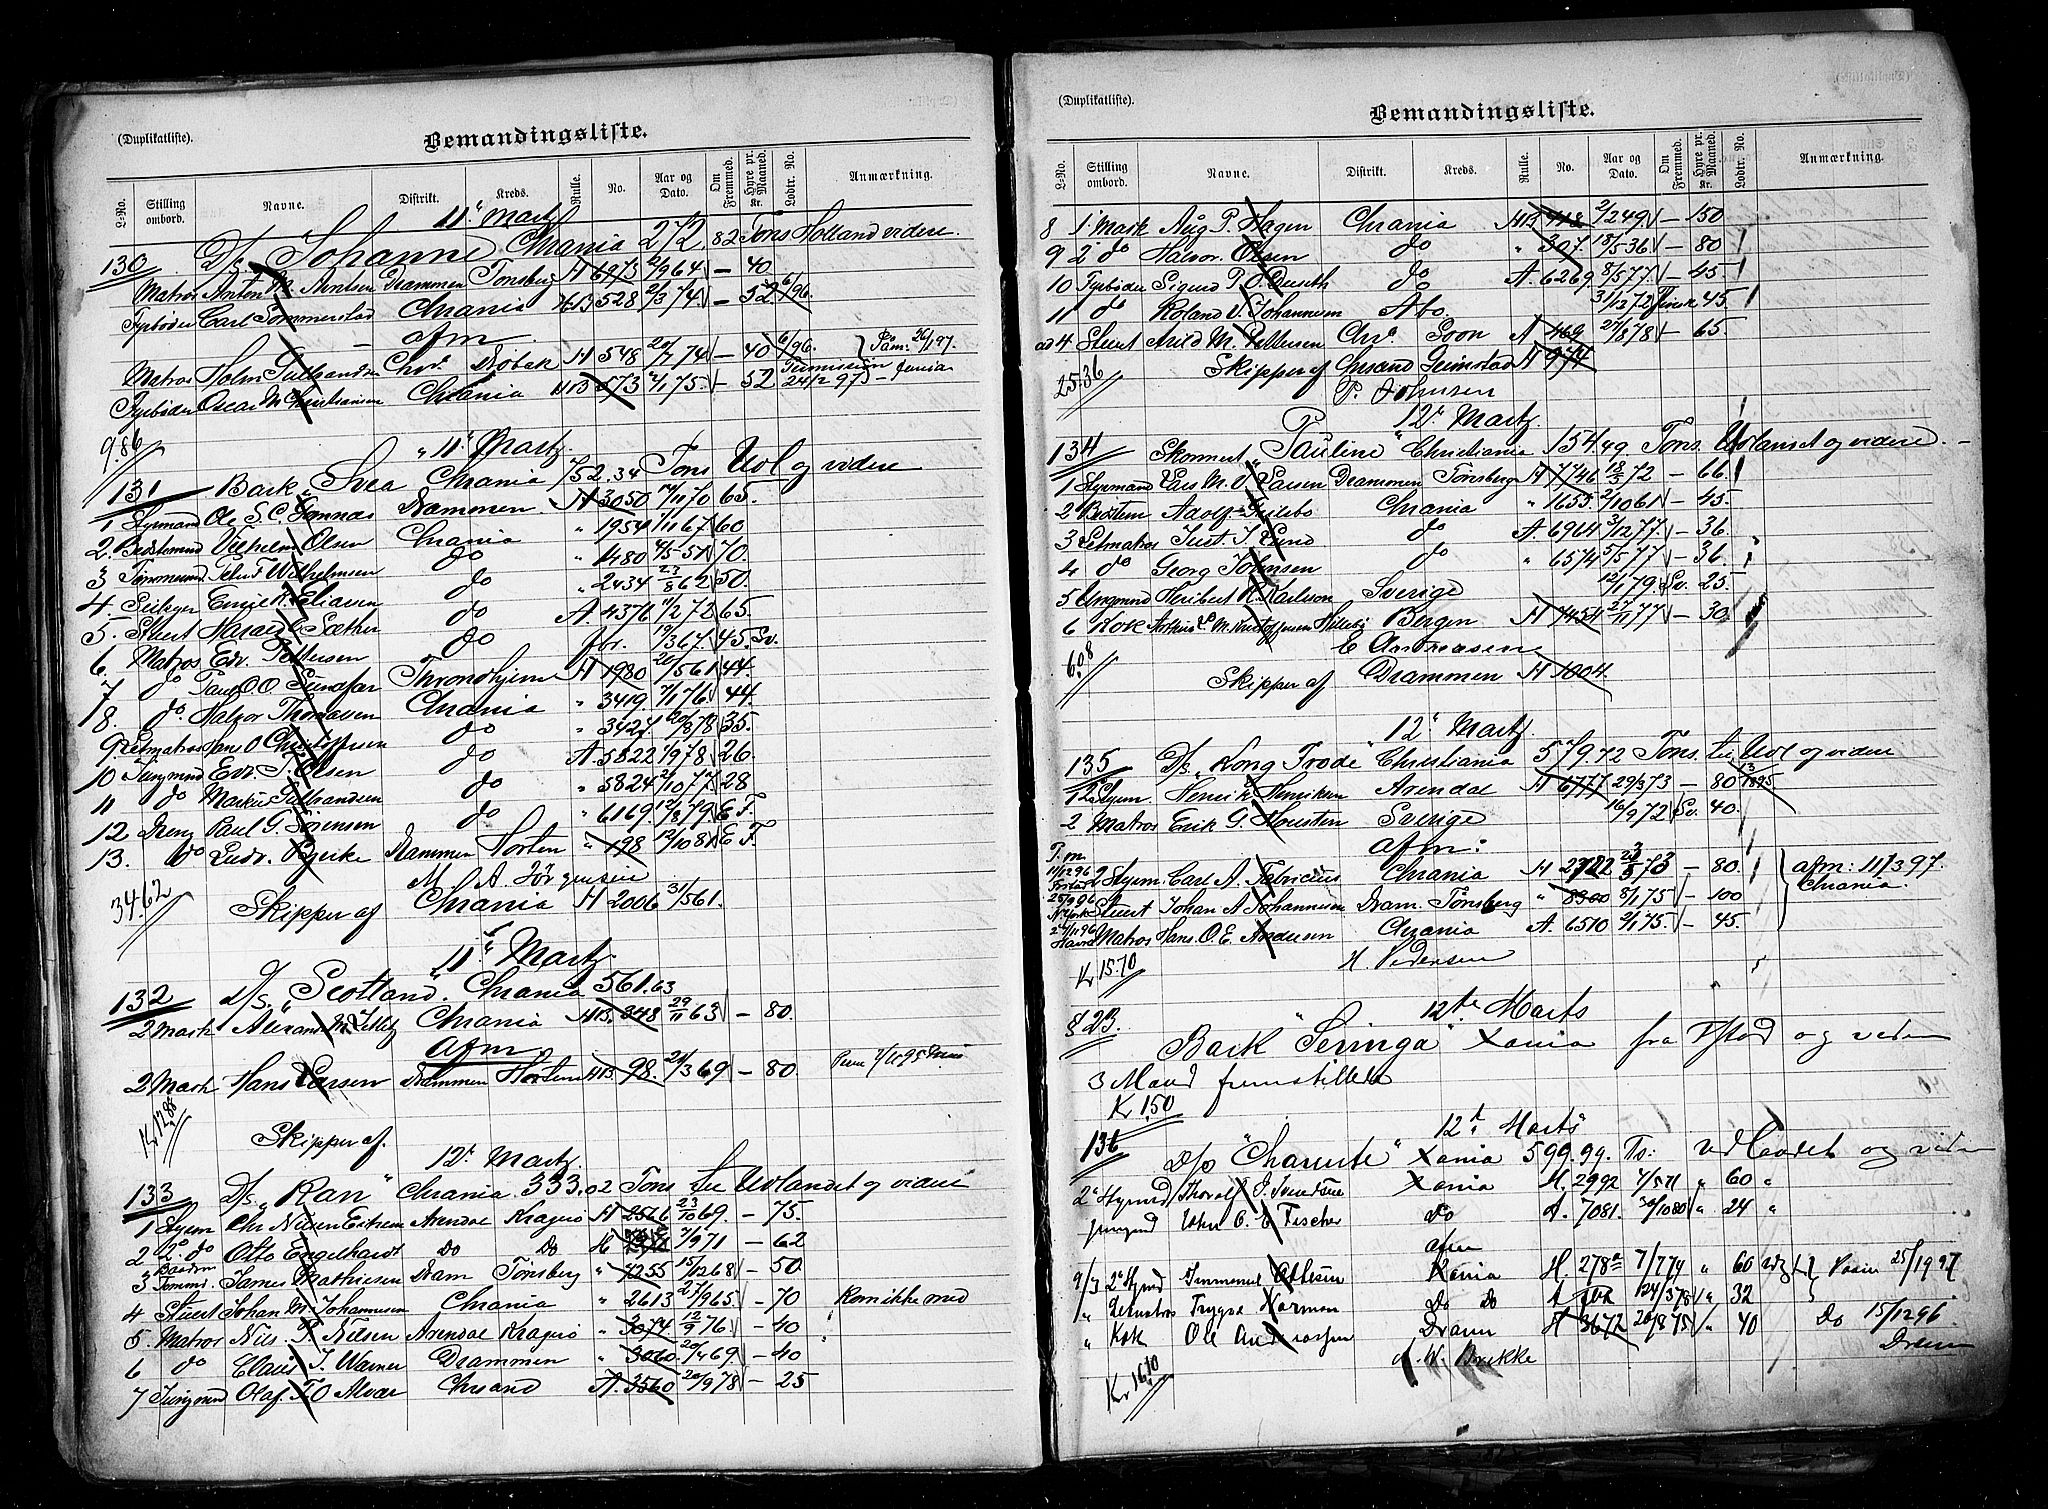 (Duplikatliste).
Bemandingsliste.
L-No. Stilling ombord. Navne. Distrikt. Kreds. Rulle. No. Aar og Dato. Om Fremmed. Hyre pr. Maaned. Kr. Lodtr. No. Anmærkning.
11te Martz
130 D/s. Johanne Chrania 272 82 Tons Holland videre.
Matros Anton M. Arntsen Drammen Tønsberg H 6973 64 — 40
Fyrbøder Carl Sommerstad Chrania HB 528 2/3 74 — 52 6/96.
afm.
Matros Holm Gulbrandsen Chra. Drøbak H 548 20/7 74 — 40 6/96. Paam: 26/1 97.
Fyrbøder Oscar M Christiansen Chrania HB 573 75 — 52 24/12 97
9.86
11te Martz
131 Bark "Svea Chrania 752.34 Tons Udl og videre
1 Styrmand Ole S. C. Drammen H 3050 70 65.
2. Bedstemand Vilhelm Olsen Chrania " 1954 1/11 67 60
3 Tømmermd Wilhelmsen do " 1480 4/5 51 70.
4. Seilgjør Eliasen do " 2434 23/8 62 50.
5. Stuert Harald Sæther do A. 4376 1/2 72 65.
6. Matros Edv. Pettersen do fbr. 19/3 67. 45. Sv.
7 do Paul O. O. Throndhjem H 1980 20/5 61 44.
8. do. Halvor Thomassen Chrania " 3419. 7/1 76 44.
9. Letmatros Hans O Christoffersen do " 3427 78 35.
10 Jungmnd Edv. Olsen do A. 5822 1/9 78 26
11 do Markus Gulbrandsen do " 5824 21/10 77. 28
12 Dreng Paul G. Sørensen do " 6169 12/8 79 E F.
13. do Ludv. Bjerke Drammen Horten " 198 12/10 81 E F.
M. A. Jørgensen
34.62 Skipper af Chrania H 2006 31/5 61.
11te Martz.
132 D/s. "Scotland" Chrania 561.63
2 Mask Chrania HB. 848 29/11 63 — 80.
Afm
2 Mask Hans Larsen Drammen Horten HB 98. 21/3 69 — 80.
Kr 12.88
Skipper af.
12te Martz.
133 D/s. "Ran" Chrania 333.02 Tons til Udlandet og videre
1 Styrm Chr Nilsen Arendal Kragerø H 2566 23/10 69. — 75.
2 2. do Otto Engelhardt Do Do H 7/9 71 — 62
3 Baadsm Tømmd. James Mathiesen Dram Tønsberg " 4255 15/12 68 — 50.
4 Stuert Johan M. Johannesen Chrania " 2613 27/9 65. — 70 Kom ikke med
5. Matros Nils. P. Nilsen Arendal Kragerø " 3074 12/9 76 — 40
6 do Elais J. Warner Drammen " 3060 20/4 69. — 40
7 Jungmnd Olaf. T. O Alvær Chrsand A. 3560 20/9 78 — 25
(Duplikatliste).
Bemandingsliste.
L-No. Stilling ombord. Navne. Distrikt. Kreds. Rulle. No. Aar og Dato. Om Fremmed. Hyre pr. Maaned. Kr. Lodtr. No. Anmærkning.
8 1ste Mask Aug P. Hagen Chrania HB 918 2/2 49 — 150
9 2 do Halvor. Olsen do " 307. 18/5 36 — 80
10 Fyrbøder Sigurd P. O. do A. 6269 8/5 77. — 45.
11 do Roland V. Johannesen Abo. 31/12 72 Finsk 45.
ad 4 Stuert Arild M. Pettersen Chra. Soon A 469 27/8 78 — 65.
25.36 Skipper af Chrsand Grimstad H 974
P. Johnsen
12te Martz
134 Skonnert "Pauline" Christiania 154.49. Tons. Udlandet og videre. —
1 Styrmand Lars M. J. Larsen Drammen Tønsberg H 7746 18/3 72 — 66
2 Bedstem Adolf Chrania " 1655 2/10 61 — 45.
3 Letmatros Just. J. Lund do A. 6964 3/12 77. — 36.
4 do Georg Johnsen do " 6574 5/5 77 — 36.
5 Ungmnd Heribert K. Karlsson Sverige 12/1 79. Sv. 25.
6 Kok Bergen H 7454 27/11 77 — 30
E Aasmasen
6.08 Skipper af Drammen H 1004
12te Martz.
135 D/s. "Kong Frode" Christiania 579.72 Tons. til Udl og videre
1 2 Styrm. Henrik Henriksen Arendal H 6777 29/3 73 — 80
2 Matros Erik G. Sverige 16/9 72 Sv. 40.
afm:
P. m. 11/12 96 2 Styrm. Carl A. Fabricius Chrania H 2722 73 — 80. afm: 11/3 97. Chrania.
25/9 96 Stuert Johan A Johannesen Dram. Tønsberg " 8300 8/1 75 — 100
2/11 96 Matros Hans. O. E. Andersen Chrania A. 6510 2/1 75. — 45.
Kr 15.70 H. Pedersen
§ 23. 12te Marts
Bark "Seringa" Xania fra Fstad og viden
3 Mand fremstillede
Kr 1.50
12te Marts
136 D/s "Charente" Xania 599.99. Ts: Udlandet og viden
2den Styrmd Thorolf J. Svendsen Xania H. 2992 4/5 71 " 60 "
Jungmd John O. E Fischer Do A. 7081. 30/10 80 " 24 "
afm
9/3 2den Styrmd Immanuel Ottesen Xania H. 278a 7/7 74 " 60 Paam 25/1 97
" Letmatros Trygve Norman Do Do A 78 " 32
" Kok Ole Andreassen Dram H 3672 20/8 75 " 40 Do 15/12 96. Dram
A. W. Brekke
Kr 16.10